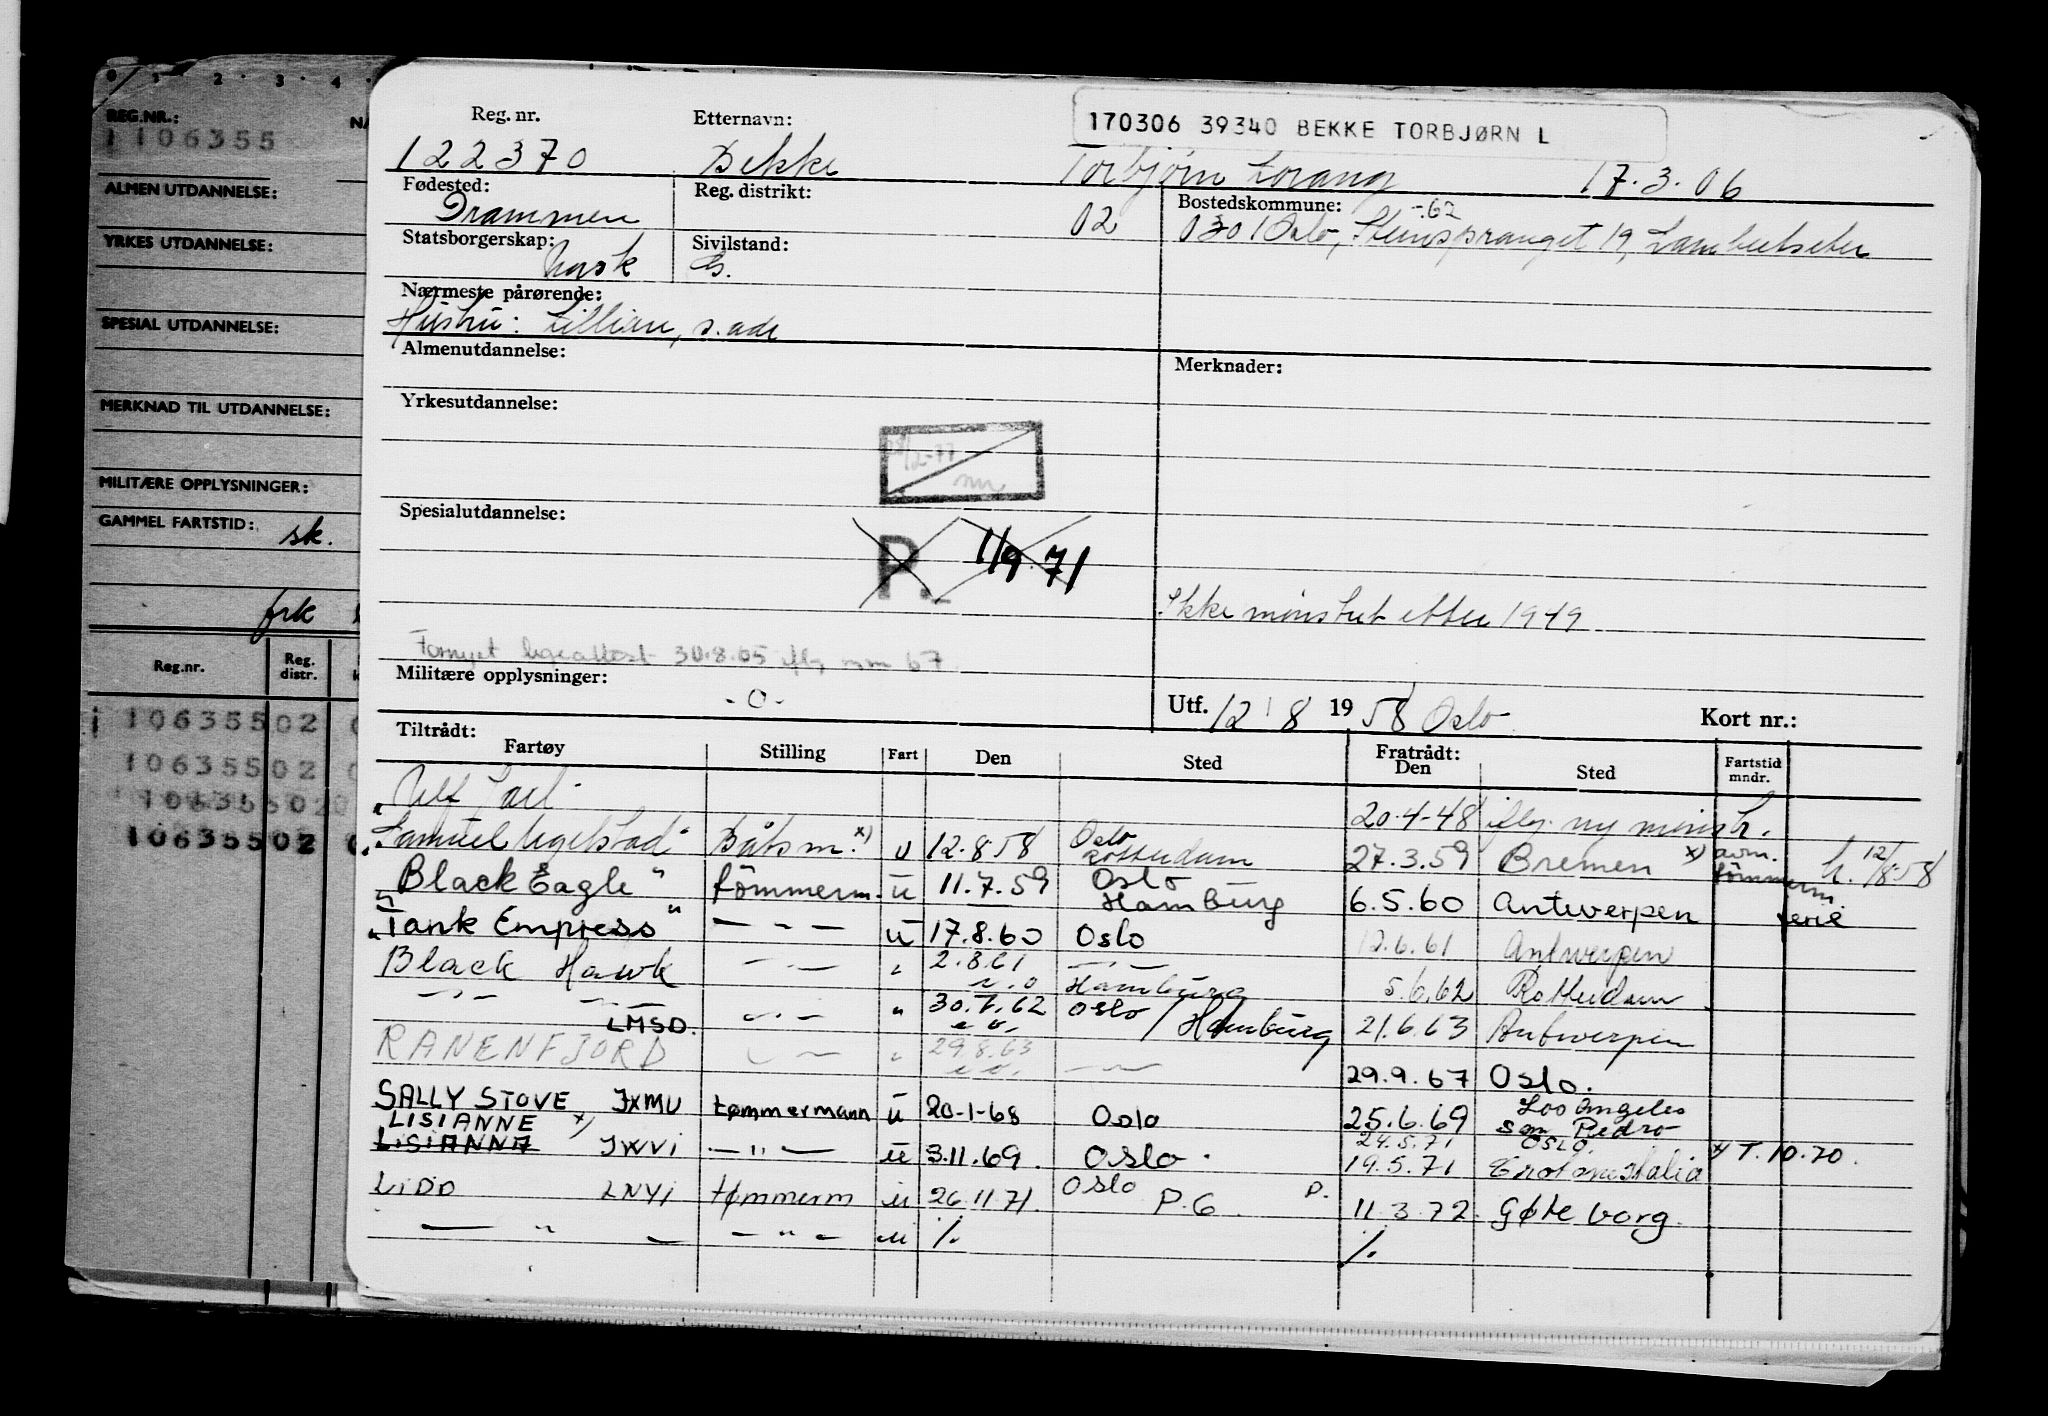 1 2 3 4
REG.NR.: NA
1106355
ALMEN UTDANNELSE:
YRKES UTDANNELSE:
SPESIAL UTDANNELSE:
MERKNAD TIL UTDANNELSE:
MILITÆRE OPPLYSNINGER:
GAMMEL FARTSTID: sk.
frk
Reg.nr. Reg. distr.
106355 02
106355 02
106355 02
106355 02
Reg. nr. Etternavn: 170306 39340 BEKKE TORBJØRN L
122370 Bekke Torbjørn Lorang 17.3.06
Fødested: Reg. distrikt: Bostedskommune:
Drammen 02 0301 Oslo, Steinspranget 19, Lambertseter
-62
Statsborgerskap: Sivilstand:
Norsk G.
Nærmeste pårørende:
Hustru: Lillian, s. adr
Almenutdannelse: Merknader:
Yrkesutdannelse:
12-77
Spesialutdannelse:
P. 1/9.71
Ikke mønstret etter 1949
Fornyet legeattest 30.8.65 67
Militære opplysninger:
-0-
Utf. 12/8 1958 Oslo Kort nr.:
Tiltrådt: Fratrådt:
Fartøy Stilling Fart Den Sted Den Sted Fartstid mndr.
"Ulf Jarl" 20-4-48 iflg. ny mønstr.
"Samuel Ugelstad" Båtsm. x) u 12.8.58 Oslo Rotterdam 27.3.59 Bremen x) avm. tømmerm. 12/8-58
"Black Eagle" tömmerm. u 11.7.59 Oslo Hamburg 6.5.60 Antwerpen ferie
"Tank Empress" — " — u 17.8.60 Oslo 12.6.61 Antwerpen
Black Hawk — " — " 2.8.61 Hamburg 5.6.62 Rotterdam
— " — — " — — " — " 30.7.62 Oslo / Hamburg 21.6.63 Antwerpen
RANENFJORD LMSD. — " — " 29.8.63 — " — 29.9.67 Oslo.
SALLY STOVE JXMU tømmermann u 20-1-68 Oslo 25.6.69 Los Angeles San Pedro
LISIANNE x)
LISIANNA JWVI — " — u 3.11.69. Oslo. 24.5.71 OSLO.
19.5.71 Italia x) T.10.70.
LIDO LNYI tømmerm u 26.11.71. Oslo P.6. P. 11.3.72. Gøteborg.
— " — — " — u %. %.